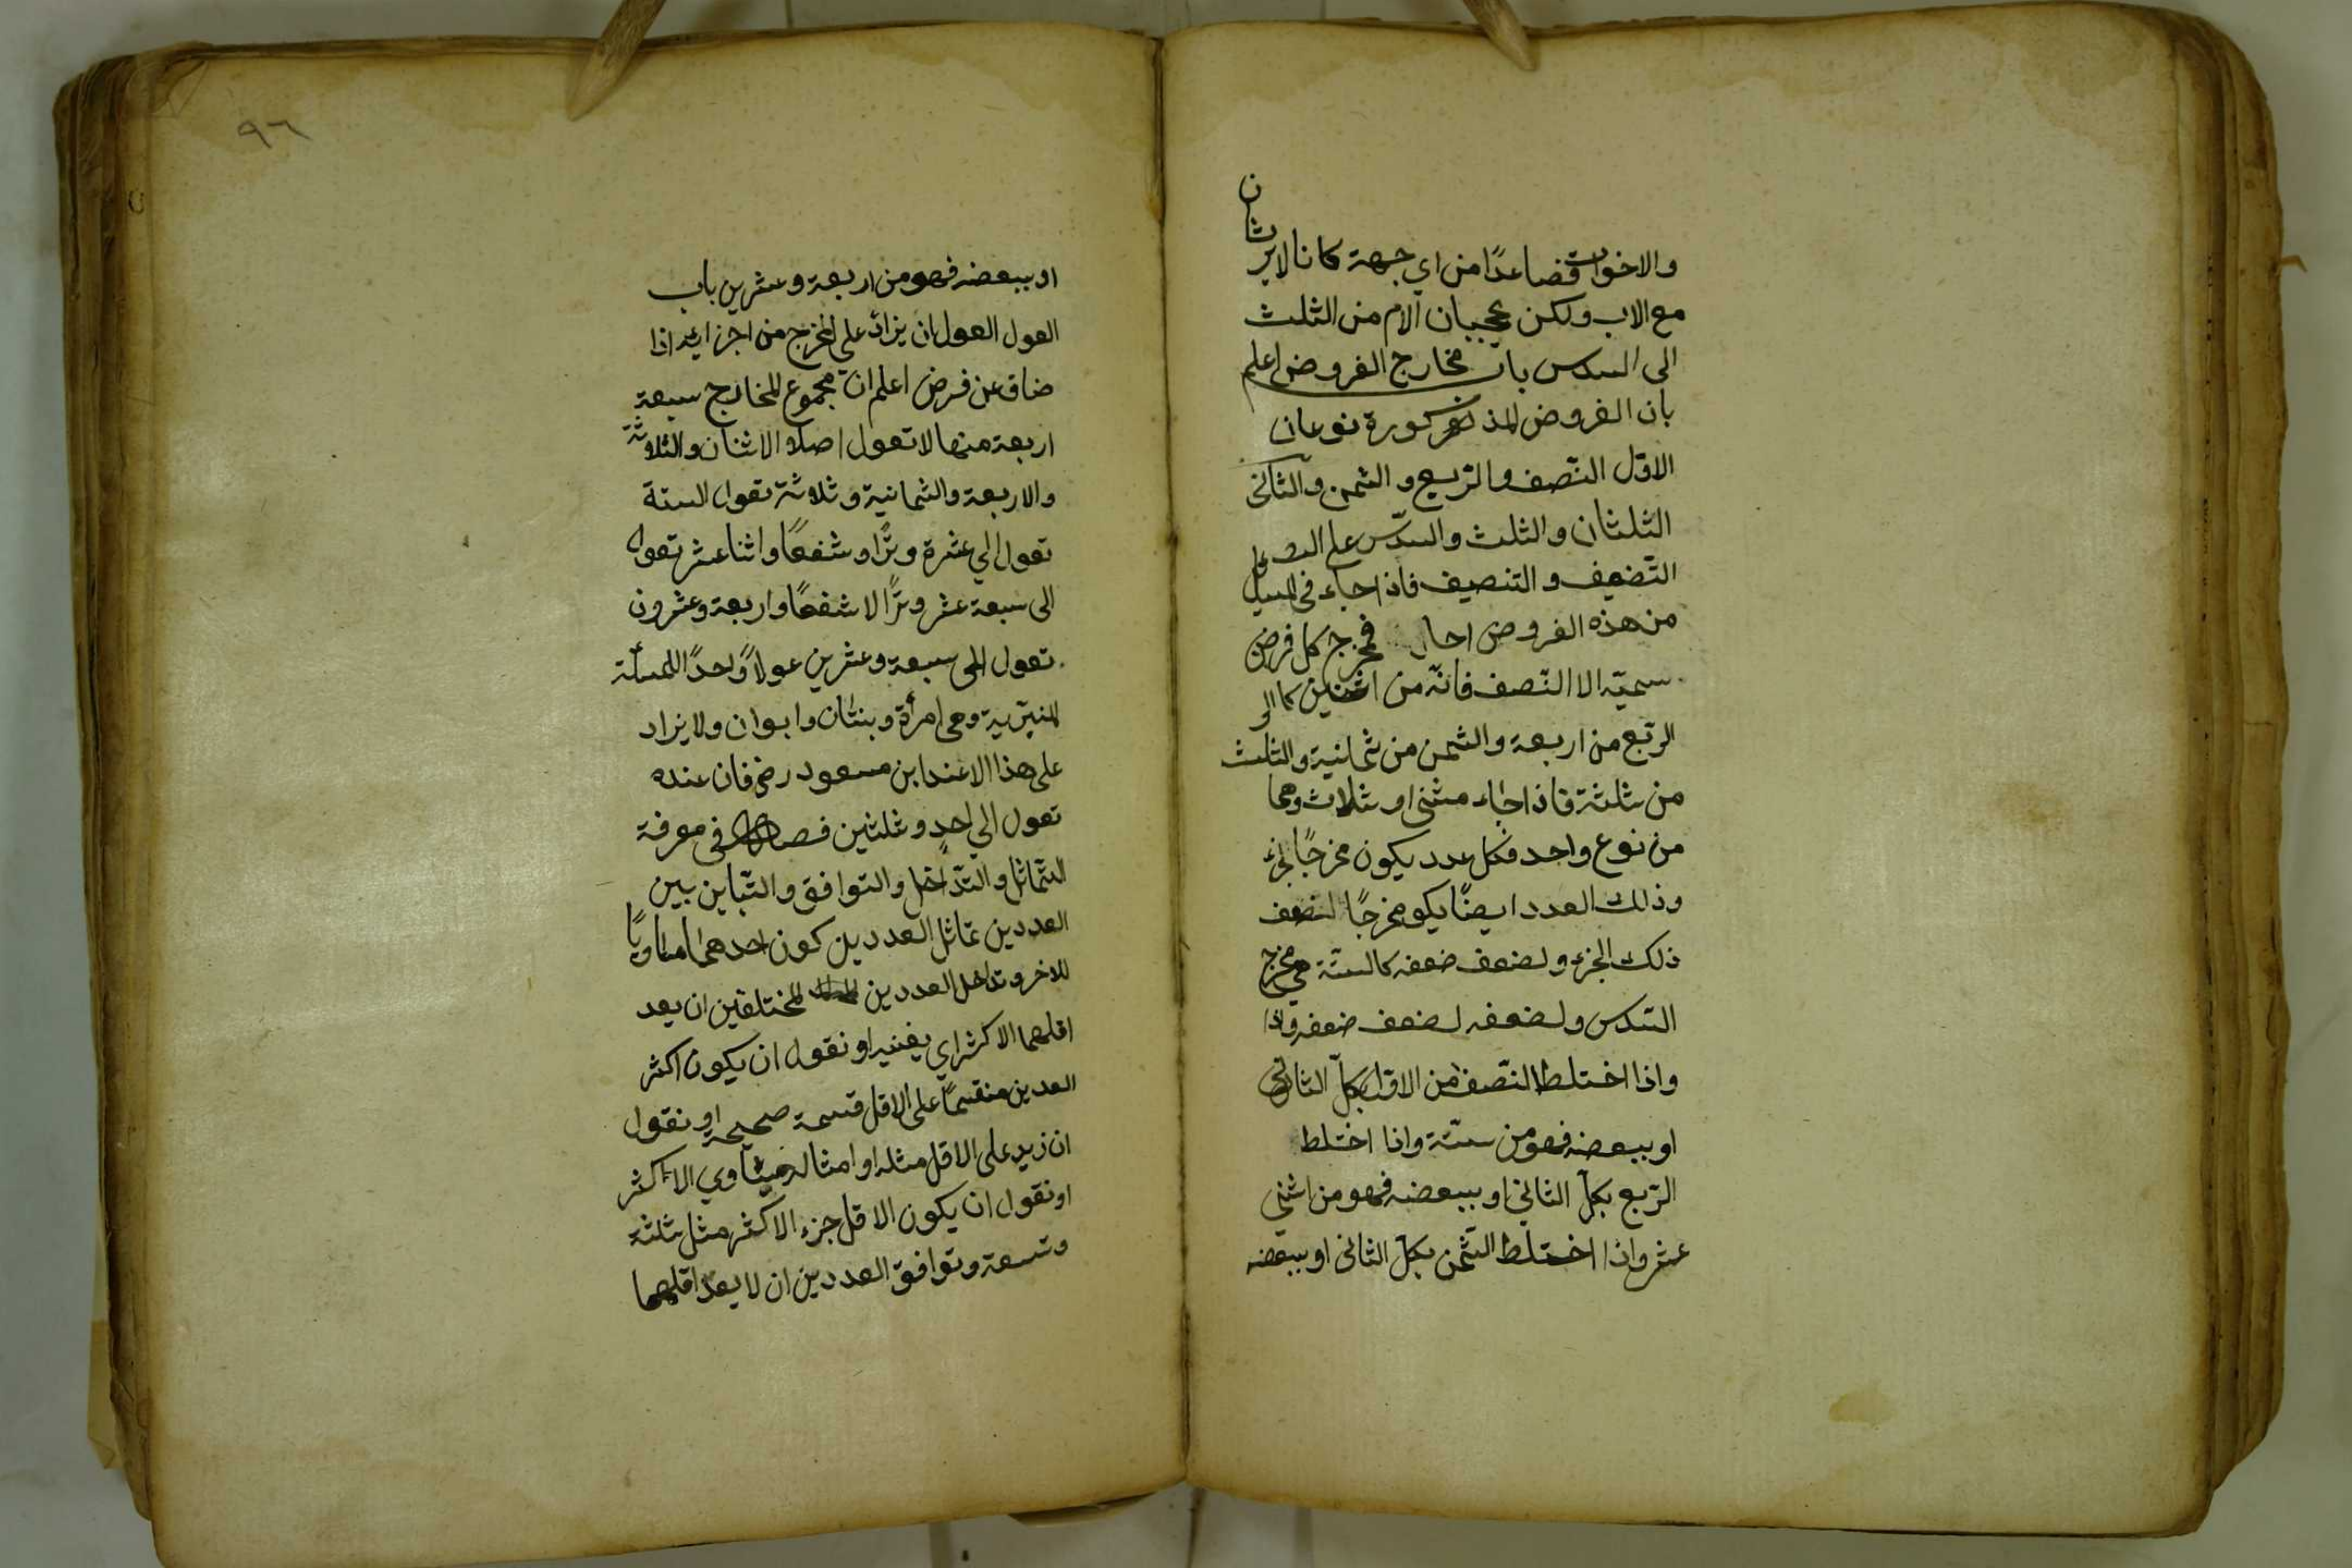 والاخوات فصاعدًا من اي جهة كانا لا يرثان
مع الاب ولكن يحجبان الام من الثلث
الى السدس باب مخارج الفروض اعلم
بان الفروض المذكورة نوعان
الاوّل النّصف والرّبع والثمن والثانى
الثلثان والثلث والسّدس على
التّضعيف والتنصيف فاذا جاء فى المسايل
من هذه الفروض احاد فمخرج كل فرض
سميّه الا النّصف فانّه من اثنين كما
الرّبع من اربعة والثمن من ثمانية والثلث
من ثلثة فاذا جاء مثنى او ثلاث وهما
من نوع واحد فكل عدد يكون مخرجًا لجزء
وذلك العدد ايضًا يكو مخرجًا لضعف
ذلك الجزء ولضعف ضعفه كالستّة هي مخرج
السّدس ولضعفه لضعف ضعفه واذا
واذا اختلط النّصف من الاوّل بكلّ الثانى
او ببعضه فهو من ستّة واذا اختلط
الرّبع بكلّ الثاني او ببعضه فهو من اثني
عشر واذا اختلط الثّمن بكلّ الثانى او ببعضه
٩٦
او ببعضه فهو من اربعة وعشرين باب
العول العول ان يزاد على المخرج من اجزايه اذا
ضاق عن فرض اعلم انّ مجموع المخارج سبعة
اربعة منها لا تعول اصلا الاثنان والثلاثة
والاربعة والثمانية وثلاثة تعول الستة
تعول الي عشرة وترًا وشفعًا واثنا عشر تعول
الى سبعة عشر وترًا لا شفعًا واربعة وعشرون
تعول الى سبعة وعشرين عولاً واحدًا المسئلة
المنبريّة وهى امرأة وبنتان وابوان ولا يزاد
على هذا الا عند ابن مسعود رضي فان عنده
تعول الي احد وثلثين فصل في معرفة
التّماثل والتّداخل والتوافق والتّباين بين
العددين تماثل العددين كون احدهما مساويًا
للاخر وتداخل العددين المختلفين ان يعد
اقلهما الاكثر اي يفنيه او نقول ان يكون اكثر
العدين منقسمًا على الاقل قسمة صحيحة او نقول
ان زيد على الاقل مثله او امثاله فيساوي الاكثر
او نقول ان يكون الاقل جزء الاكثر مثل ثلثة
وتسعة وتوافق العددين ان لا يعدّ اقلهما